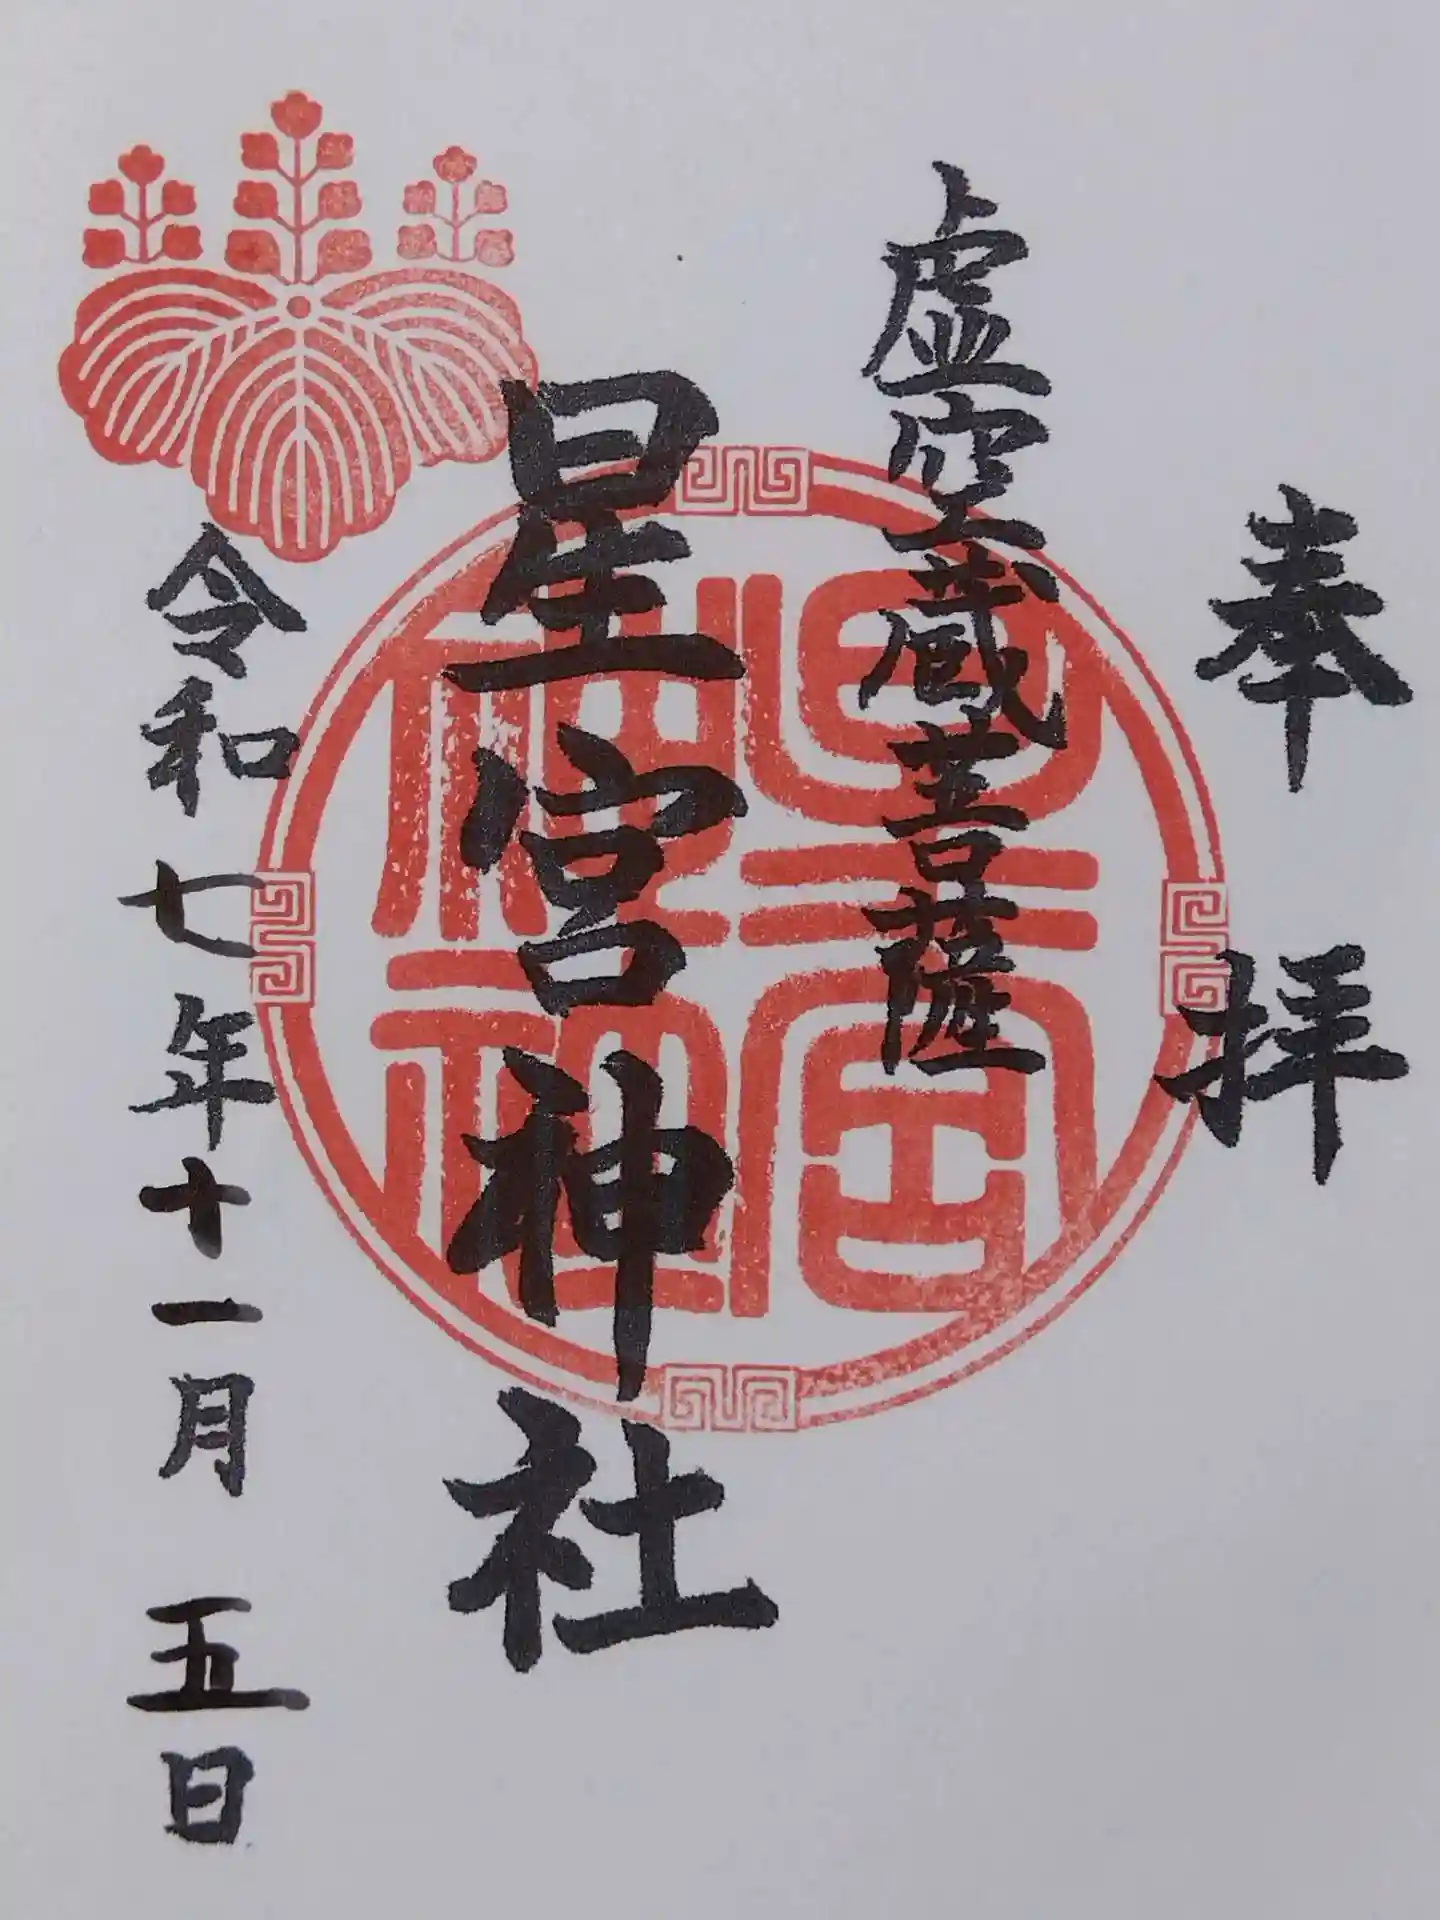 奉拝
虚空蔵菩薩
星宮神社
令和七年十一月五日